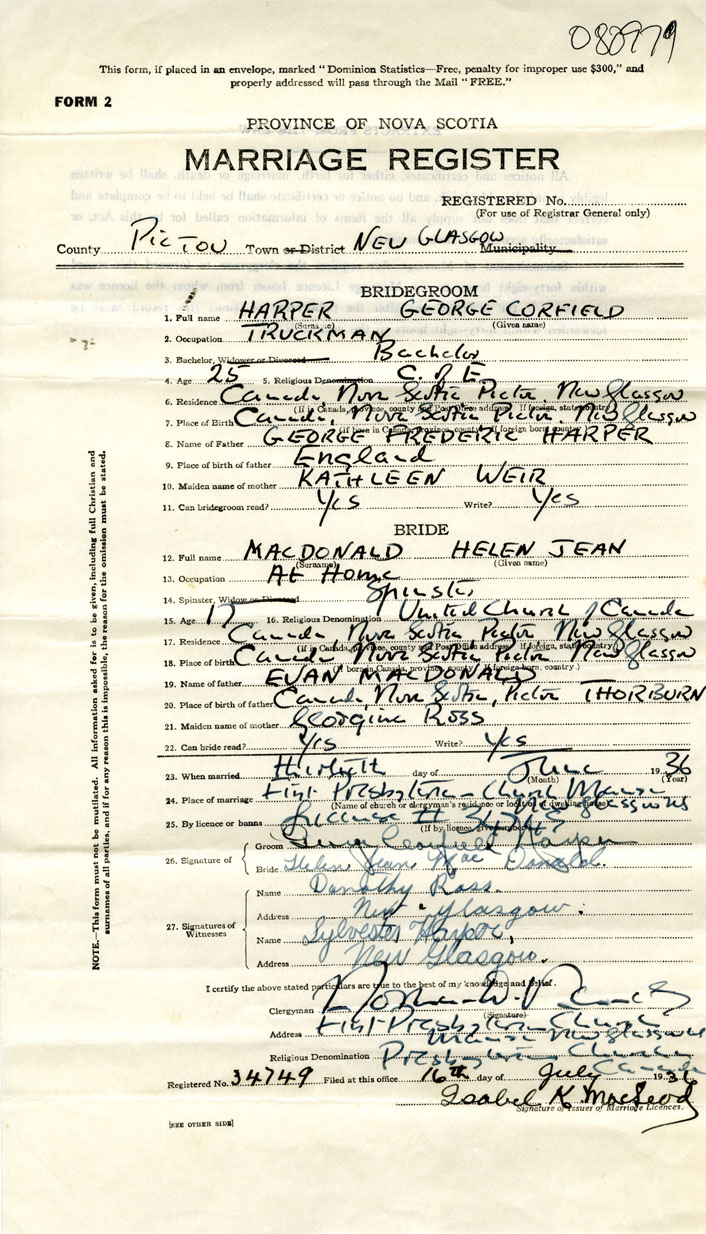 080979
This form, if placed in an envelope, marked "Dominion Statistics—Free, penalty for improper use $300," and
properly addressed will pass through the Mail "FREE."
FORM 2
PROVINCE OF NOVA SCOTIA
MARRIAGE REGISTER
REGISTERED No.
(For use of Registrar General only)
County PICTOU Town or District NEW GLASGOW Municipality
BRIDEGROOM
1. Full name HARPER GEORGE CORFIELD
(Surname) (Given name)
2. Occupation TRUCKMAN
3. Bachelor, Widower or Divorced Bachelor
4. Age 25 5. Religious Denomination C. of E.
6. Residence Canada, Nova Scotia Pictou, New Glasgow
(If in Canada, province, county and Post Office address. If foreign, state country)
7. Place of Birth Canada, Nova Scotia Pictou, New Glasgow
(If born in Canada, province, county. If foreign born, country)
8. Name of Father GEORGE FREDERIC HARPER
9. Place of birth of father England
10. Maiden name of mother KATHLEEN WEIR
11. Can bridegroom read? Yes Write? Yes
BRIDE
12. Full name MACDONALD HELEN JEAN
(Surname) (Given name)
13. Occupation At Home
14. Spinster, Widow or Divorced Spinster
15. Age 17 16. Religious Denomination United Church of Canada
17. Residence Canada Nova Scotia Pictou New Glasgow
(If in Canada, province, county and Post Office address. If foreign, state country)
18. Place of birth Canada Nova Scotia Pictou New Glasgow
(If born in Canada, province, county. If foreign born, country.)
19. Name of father EVAN MACDONALD
20. Place of birth of father Canada, Nova Scotia, Pictou THORBURN
21. Maiden name of mother Georgina Ross
22. Can bride read? Yes Write? Yes
23. When married thirtieth day of June 1936
(Month) (Year)
24. Place of marriage First Presbyterian Church Manse
(Name of church or clergyman's residence or location of dwelling house) New Glasgow NS
25. By licence or banns License #
(If by licence, give number)
26. Signature of
Groom George Corfield Harper
Bride Helen Jean MacDonald.
27. Signatures of Witnesses
Name Dorothy Ross.
Address New Glasgow.
Name Sylvester Harper,
Address New Glasgow.
I certify the above stated particulars are true to the best of my knowledge and belief.
Clergyman Norman D.
(Signature)
Address First Presbyterian Church
Manse New Glasgow NS
Religious Denomination Presbyterian Church
Canada
Registered No. 34749 Filed at this office 16th day of July 1936
Isabel K MacLeod
Signature of Issuer of Marriage Licences.
[SEE OTHER SIDE]
NOTE.—This form must not be mutilated. All information asked for is to be given, including full Christian and
surnames of all parties, and if for any reason this is impossible, the reason for the omission must be stated.